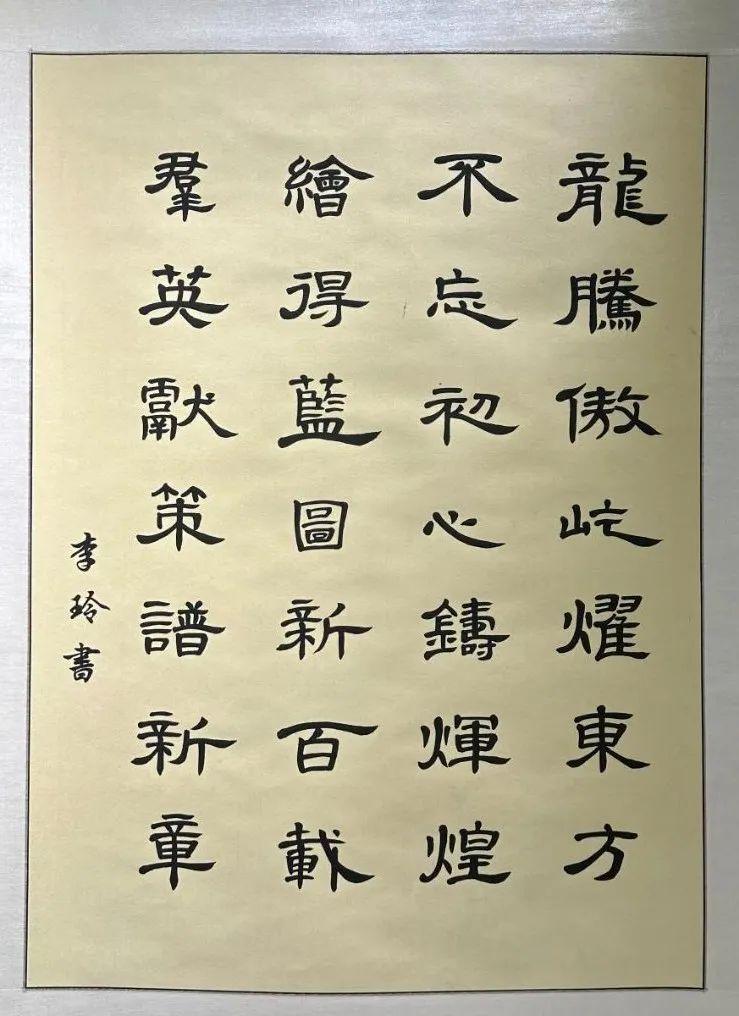 龍騰傲屹耀東方
不忘初心鑄輝煌
繪得藍圖新百載
羣英獻策譜新章
李玲書